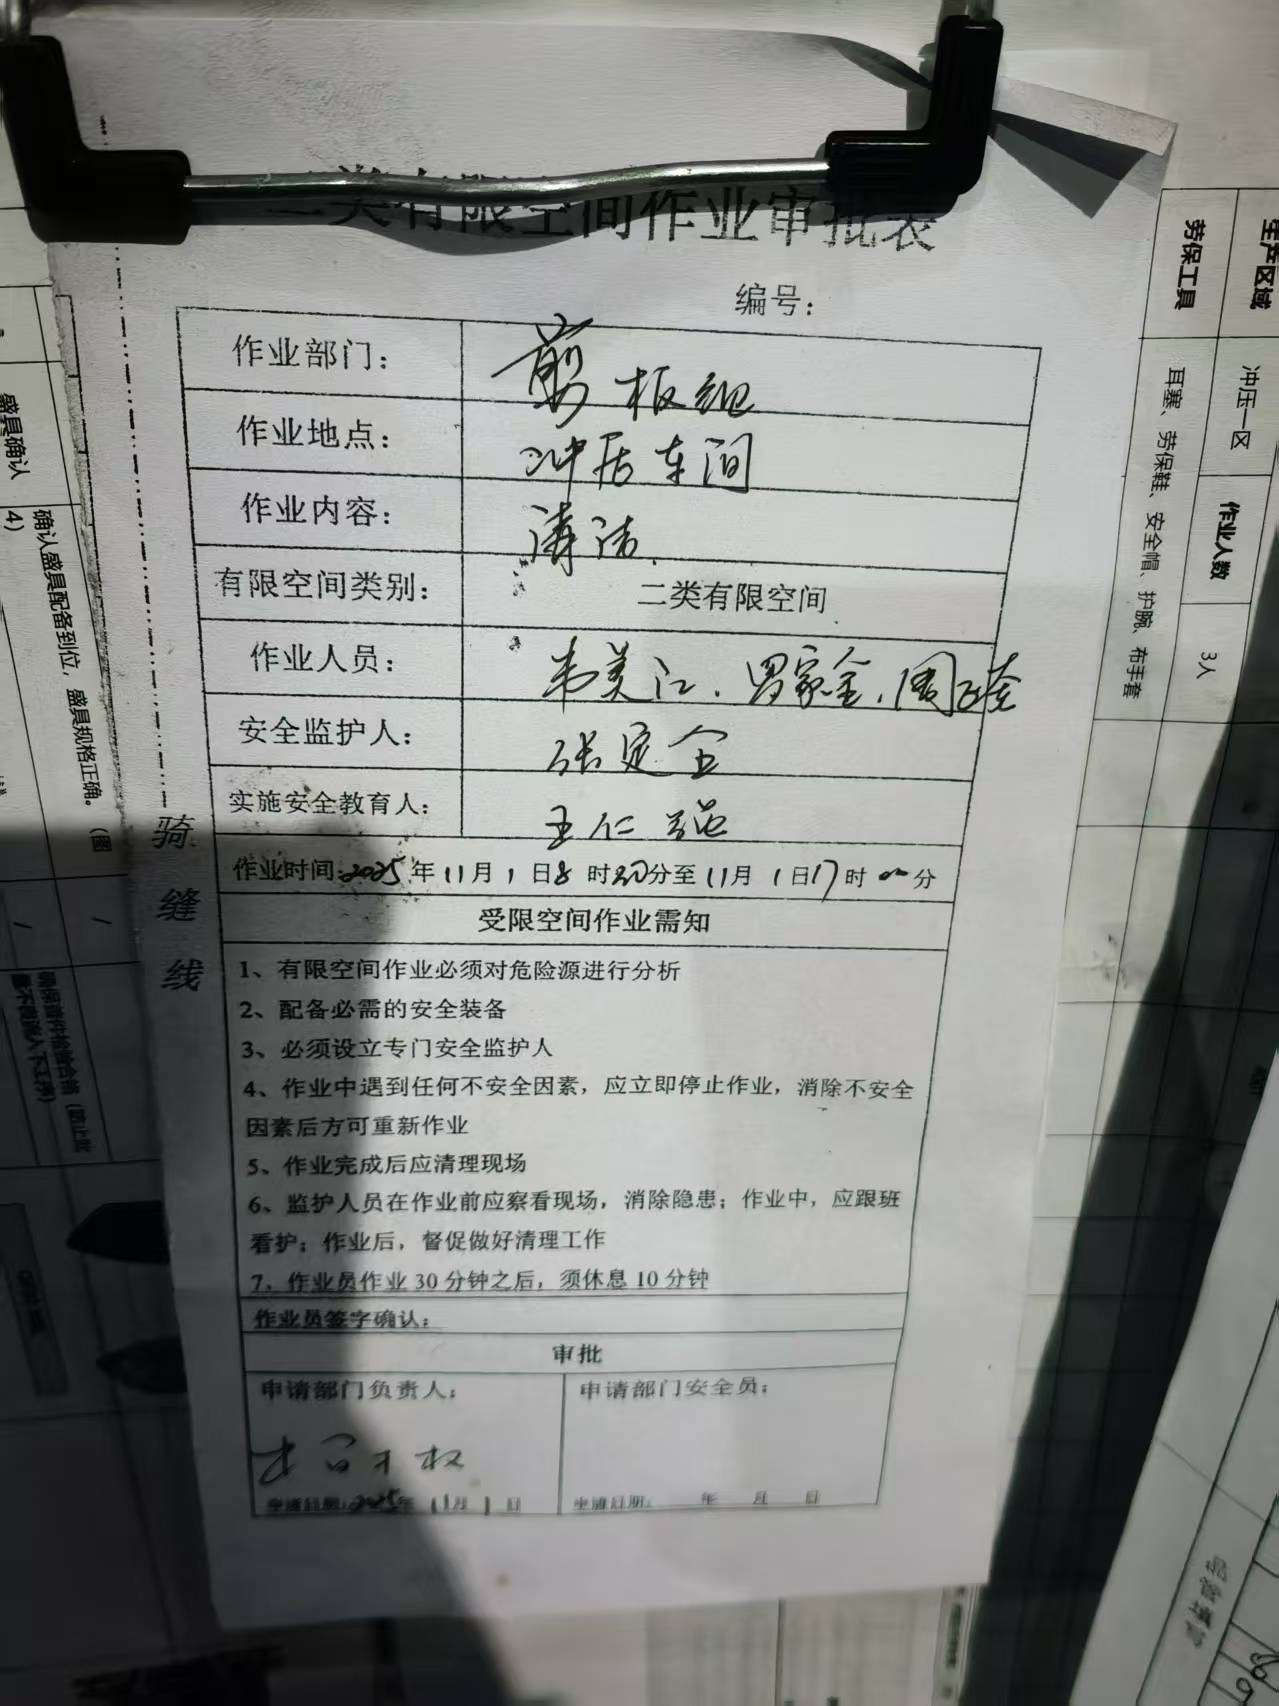 二类有限空间作业审批表
编号：
作业部门： 剪板组
作业地点： 冲压车间
作业内容： 清洁
有限空间类别： 二类有限空间
作业人员： 韦美江、罗家金、周
安全监护人： 张定全
实施安全教育人： 王仁强
作业时间：2025年11月1日8时30分至11月1日17时00分
受限空间作业需知
1、有限空间作业必须对危险源进行分析
2、配备必需的安全装备
3、必须设立专门安全监护人
4、作业中遇到任何不安全因素，应立即停止作业，消除不安全
因素后方可重新作业
5、作业完成后应清理现场
6、监护人员在作业前应察看现场，消除隐患；作业中，应跟班
看护；作业后，督促做好清理工作
7、作业员作业30分钟之后，须休息10分钟
作业员签字确认：
审批
申请部门负责人： 申请部门安全员：
申请日期：2025年11月1日 申请日期： 年 月 日
骑缝线
盛具确认
确认盛具配备到位，盛具规格正确。（图
4）
生产区域
冲压一区
作业人数
3人
劳保工具
耳塞、劳保鞋、安全帽、护腕、布手套